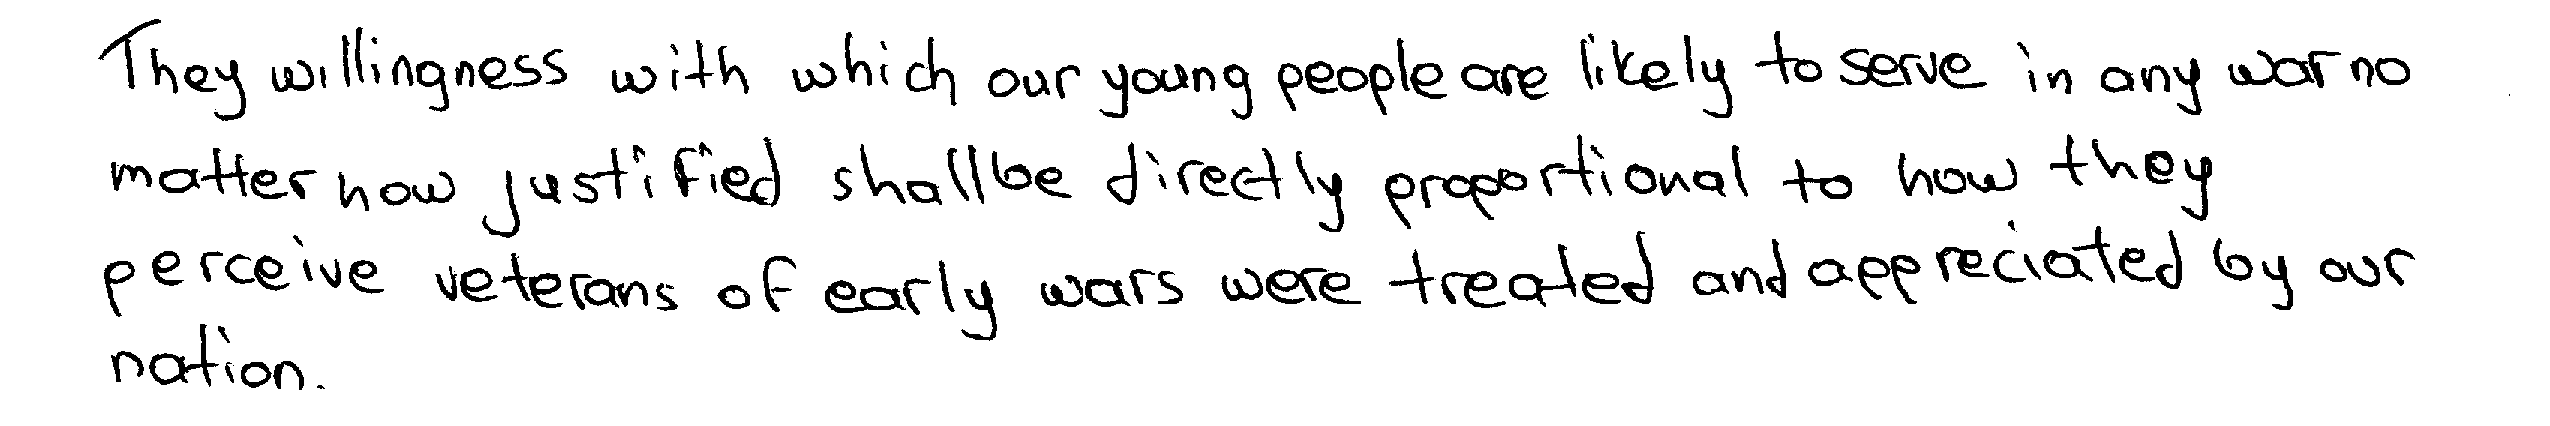 They willingness with which our young people are likely to serve in any war no
matter how justified shall be directly proportional to how they
perceive veterans of early wars were treated and appreciated by our
nation.